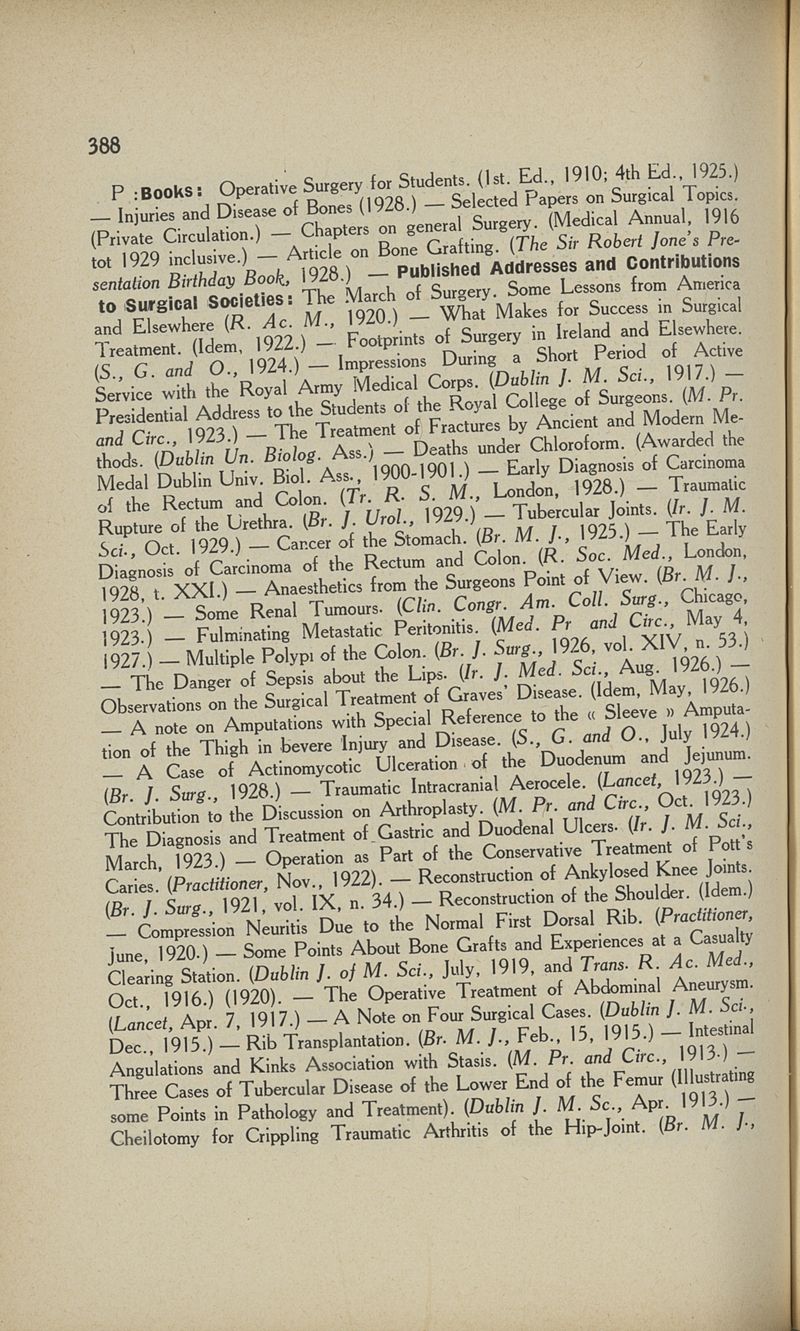 388
P :Books: Operative Surgery for Students. (1st. Ed., 1910; 4th Ed., 1925.)
— Injuries and Disease of Bones (1928.) — Selected Papers on Surgical Topics.
(Private Circulation.) — Chapters on general Surgery. (Medical Annual, 1916
tot 1929 inclusive.) — Article on Bone Grafting. (The Sir Robert Jone's Pre-
sentation Birthday Book, 1928.) — Published Addresses and Contributions
to Surgical Societies: The March of Surgery. Some Lessons from America
and Elsewhere (R. Ac. M., 1920.) — What Makes for Success in Surgical
Treatment. (Idem, 1922.) — Footprints of Surgery in Ireland and Elsewhere.
(S., G. and O., 1924.) — Impressions During a Short Period of Active
Service with the Royal Army Medical Corps. (Dublin J. M. Sci., 1917.) —
Presidential Address to the Students of the Royal College of Surgeons. (M. Pr.
and Circ., 1923.) — The Treatment of Fractures by Ancient and Modern Me-
thods. (Dublin Un. Biolog. Ass.) — Deaths under Chloroform. (Awarded the
Medal Dublin Univ. Biol. Ass., 1900-1901.) — Early Diagnosis of Carcinoma
of the Rectum and Colon. (Tr. R. S. M., London, 1928.) — Traumatic
Rupture of the Urethra. (Br. J. Urol., 1929.) — Tubercular Joints. (Ir. J. M.
Sci., Oct. 1929.) — Cancer of the Stomach. (Br. M. J., 1925.) — The Early
Diagnosis of Carcinoma of the Rectum and Colon. (R. Soc. Med., London,
1928, t. XXI.) — Anaesthetics from the Surgeons Point of View. (Br. M. J.,
1923.) — Some Renal Tumours. (Clin. Congr. Am. Coll. Surg., Chicago,
1923.) — Fulminating Metastatic Peritonitis. (Med. Pr and Circ., May 4,
1927.) — Multiple Polypi of the Colon. (Br. J. Surg., 1926, vol. XIV, n. 53.)
— The Danger of Sepsis about the Lips. (Ir. J. Med. Sci., Aug. 1926.) —
Observations on the Surgical Treatment of Graves' Disease. (Idem, May, 1926.)
— A note on Amputations with Special Reference to the « Sleeve » Amputa-
tion of the Thigh in bevere Injury and Disease. (S., G. and O., July 1924.)
— A Case of Actinomycotic Ulceration of the Duodenum and Jejunum.
(Br. J. Surg., 1928.) — Traumatic Intracranial Aerocele. (Lancet, 1923.) —
Contribution to the Discussion on Arthroplasty. (M. Pr. and Circ., Oct. 1923.)
The Diagnosis and Treatment of Gastric and Duodenal Ulcers. (Ir. J. M. Sci.,
March, 1923.) — Operation as Part of the Conservative Treatment of Pott's
Caries. (Practitioner, Nov., 1922). — Reconstruction of Ankylosed Knee Joints.
(Br. J. Surg., 1921, vol. IX, n. 34.) — Reconstruction of the Shoulder. (Idem.)
— Compression Neuritis Due to the Normal First Dorsal Rib. (Practitioner,
June, 1920.) — Some Points About Bone Grafts and Experiences at a Casualty
Clearing Station. (Dublin J. of M. Sci., July, 1919, and Trans. R. Ac. Med.,
Oct., 1916.) (1920). — The Operative Treatment of Abdominal Aneurysm.
(Lancet, Apr. 7, 1917.) — A Note on Four Surgical Cases. (Dublin J. M. Sci.,
Dec., 1915.) — Rib Transplantation. (Br. M. J., Feb., 15, 1915.) — Intestinal
Angulations and Kinks Association with Stasis. (M. Pr. and Circ., 1913.) —
Three Cases of Tubercular Disease of the Lower End of the Femur (Illustrating
some Points in Pathology and Treatment). (Dublin J. M. Sc., Apr. 1913.) —
Cheilotomy for Crippling Traumatic Arthritis of the Hip-Joint. (Br. M. J.,